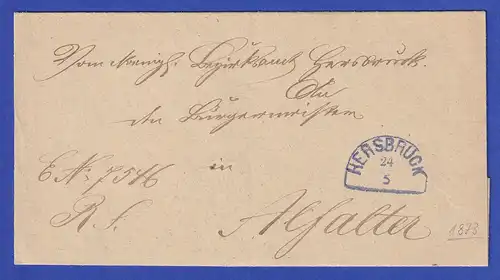 Vom Königl. Bezirksamt Hersbruck.
An
den Bürgermeister
in
E. No. 7546
R. S.
Alfalter
HERSBRUCK
24
5
1873